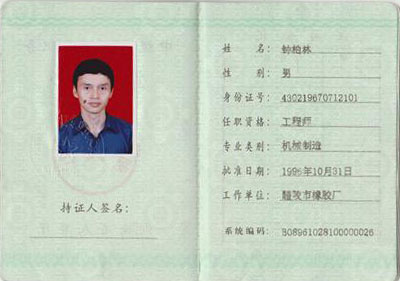 持证人签名：
姓 名：钟柏林
性 别：男
身份证号：430219670712101
任职资格：工程师
专业类别：机械制造
批准日期：1998年10月31日
工作单位：醴陵市橡胶厂
系统编码：B08961028100000026